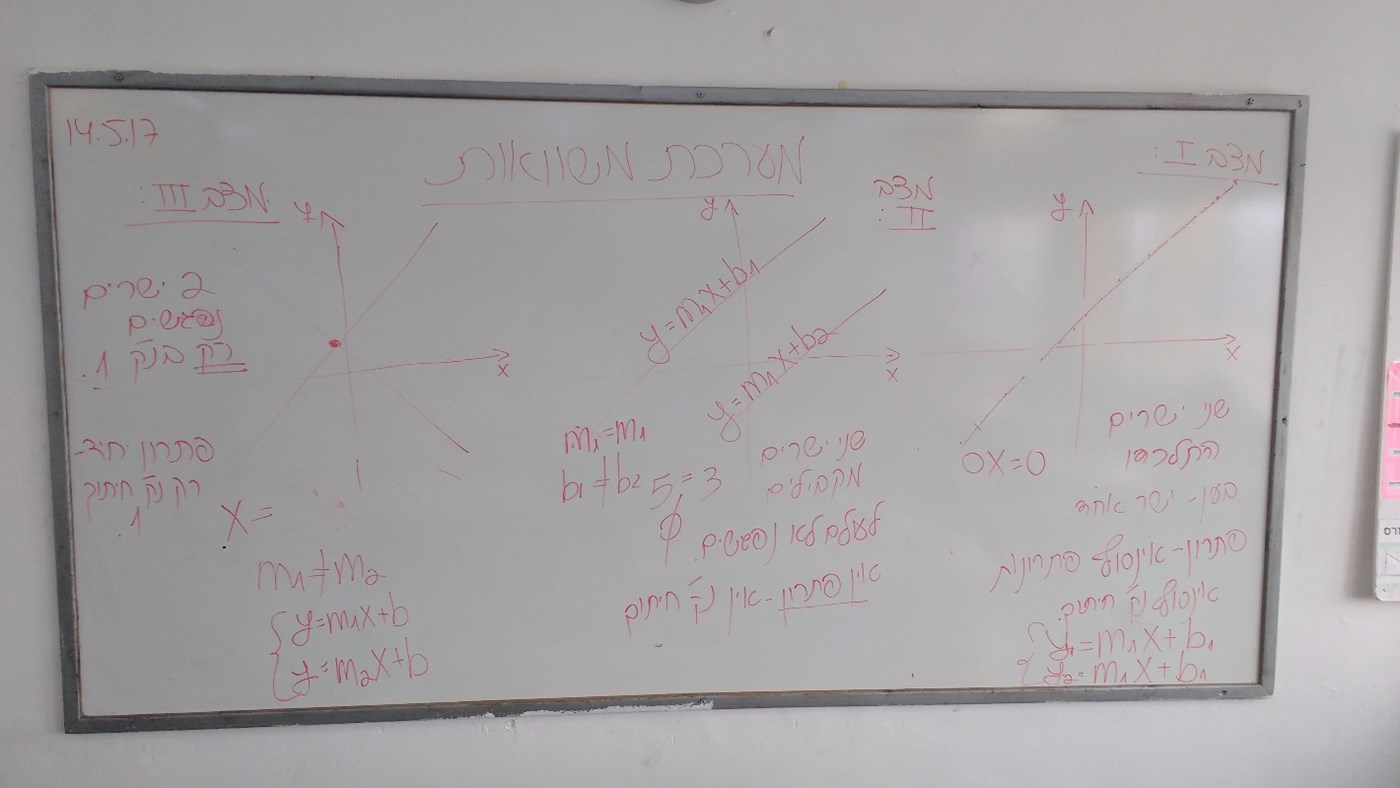 14.5.17
מערכת משוואות
מצב I :
y
x
0x=0
שני ישרים
התלכדו
בען - ישר אחד
פתרון - אינסוף פתרונות
אינסוף נק' חיתוך
y₁=m₁x+b₁
y₂=m₁x+b₁
מצב
II :
y
x
y=m₁x+b₁
y=m₁x+b₂
m₁=m₁
b₁≠b₂
5=3
φ
שני ישרים
מקבילים
לעולם לא נפגשים
אין פתרון - אין נק' חיתוך
מצב III :
y
x
2 ישרים
נפגשים
רק בנק' 1.
פתרון יחיד -
רק נק' חיתוך
1
x=
m₁≠m₂
y=m₁x+b
y=m₂x+b